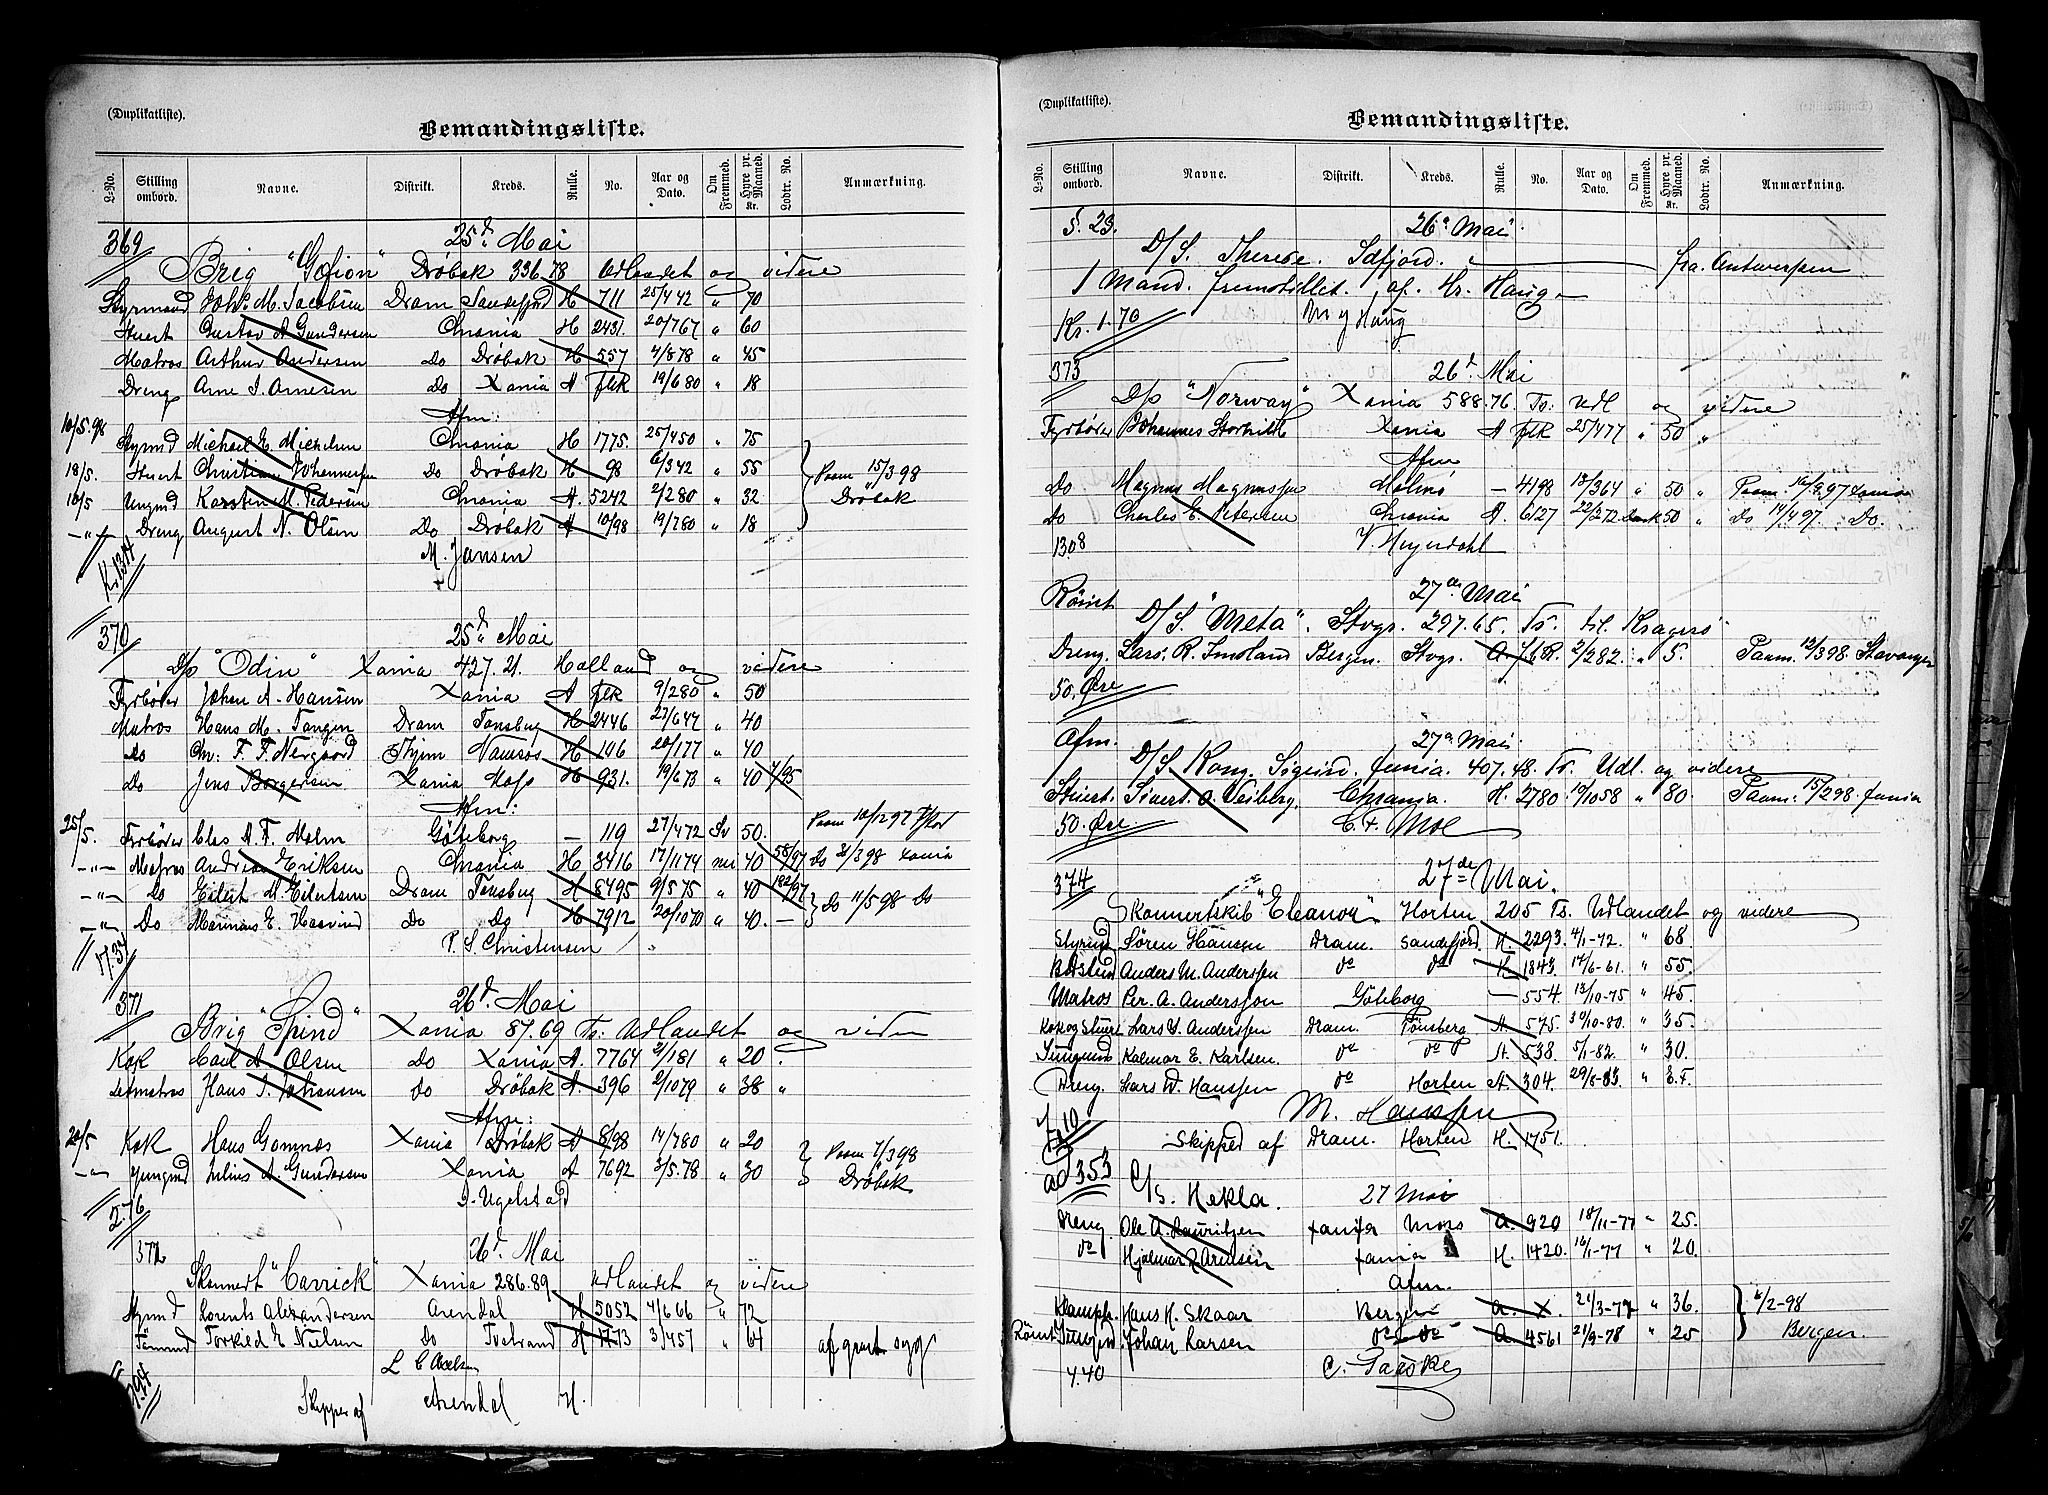 (Duplikatliste).
Bemandingsliste.
L-No. Stilling ombord. Navne. Distrikt. Kreds. Rulle. No. Aar og Dato. Om Fremmed. Hyre pr. Maaned. Kr. Lodtr. No. Anmærkning.
369 25d. Mai
Brig "Gefion" Dröbak 336.78 Udlandet og videre
Styrmand Johs. M. Jacobsen Dram Sandefjord H 711 25/4 42 " 70
Stuert Gustav A Gundersen Chrania H 2431. 20/7 67 " 60
Matros Arthur Andersen Do Dröbak H 557 4/8 78 " 45
Dreng Arne I. Arnesen Do Xania A flk 19/6 80 " 18
Afm:
10/5.98 Stymd Michael E. Michelsen Chrania H 1775. 25/4 50 " 75
18/5. Stuert Christian Johannesen Do Dröbak H 98 6/3 42 " 55 Paam 15/3 98
16/5 Ungmd Karsten M. Pedersen Chrania A. 5242 2/2 80 " 32 Dröbak
-"- Dreng August N. Olsen Do Dröbak A 10/98 19/7 80 " 18
M. Jansen
370 25d. Mai
D/p "Odin" Xania 427.21. Holland og videre
Fyrböter Johan A. Hansen Xania A flk 9/2 80 " 50
Matros Hans M. Tangen Dram Tonsbug H 2446 27/6 47 " 40
Do Chr. F. F. Nergaard Thjem Namsos H 106 20/1 77 " 40
Do Jens Borgersen Xania Moss H 931. 19/6 73 " 40 4/95
Afm:
25/5. Fyrböter Clas A. F. Malm Göteborg — 119 27/4 72 Sv 50. Paam 10/12 97
-"- Matros Andreas Eriksen Chrania H 3416 17/11 74 40 58/97 Do 31/3 98 Xania
-"- Do Eilert M. Eilertsen Dram Tonsbug H 8495 9/5 75 " 40 182/97 Do 11/5 98 Do
-"- Do Marinius E. Haavind Do Do H 7912 20/10 70 " 40. —
17.34 P. S. Christensen
371 26d. Mai
Brig "Spind" Xania 87.69 Ts. Udlandet og videre
Kok Carl A. Olsen Do Xania A. 7764 2/1 81 " 20 "
Letmatros Hans I. Johansen Do Dröbak A. 396 2/10 79 " 38 "
Afm:
20/5 Kok Hans Gomnæs Xania Dröbak A 8/98 14/7 80 " 20 Paam 7/3 98
-"- Jungmd Julius A. Gundersen Xania A 7692 3/5.78 " 30 Dröbak
2.76 Ugelstad
372 26d. Mai
Skonnert "Carrick" Xania 286.89 Udlandet og videre
Stymd Lorents Alexandersen Arendal H 5052 4/6 66 " 72
Tømmd Torkild E Nielsen Do Tvetrand H 1773 3/4 57 " 64
L C Axelsen
Skipper af Arendal H.
(Duplikatliste).
Bemandingsliste.
L-No. Stilling ombord. Navne. Distrikt. Kreds. Rulle. No. Aar og Dato. Om Fremmed. Hyre pr. Maaned. Kr. Lodtr. No. Anmærkning.
§. 23. 26d Mai.
D/S. Therese. Idfjord. fra. Antwerpen
1 Mand. fremstillet. af. Hr. Haug
Kr. 1.70 Haug
373 26d. Mai
D/p "Norway" Xania 588.76. Ts. Udl og videre
Fyrböter Johannes Xania A flk 25/4 77 " 50 "
Afm
Do Magnus Magnussen Malmö — 4198 13/3 64 " 50 " Paam. 16/8 97 Xania
Do Charles E. Petersen Chrania A. 6127 22/2 72 Dansk 50 " Do 14/4 97. Do.
13.08 V. Heyerdahl
Römt 27de Mai
D/S. "Meta". Stvgr. 297.65. Ts. til Kragerö
Dreng. Lars. R. Imsland Bergen. Stvgr. A. flk. 2/2 82. " 5. Paam. 12/3 98. Stavanger
50. Øre
Afm. 27d Mai.
D/S Kong. Sigurd. Xania. 407.48. Ts. Udl. og videre
Stuert. Sivert. O. Veiberg. Chrania. H. 2780. 19/10 58 " 80. Paam. 15/2 98. Xania
50. Øre C. F. Moe
374 27de Mai.
Skonnertskib "Eleanor" Horten 205 Ts. Udlandet og videre
Styrmd Sören Hansen Dram. Sandefjord. H. 2293. 4/1-72. " 68.
Anders M. Anderssen do do H 1843. 14/6-61. " 55.
Matros Per. A. Andersson Göteborg — 554. 13/10-75 " 45.
Kok og Stuert Lars I. Anderssen Dram. Tönsberg A. 575. 30/10-80. " 35.
Jungmd Kalmar E. Karlsen. do do A. 538. 5/1-82. " 30.
Dreng. Lars W. Hanssen do Horten A. 304. 29/8-83. " E.F.
M. Hanssen
Skipped af Dram. Horten H. 1751.
ad 353 C/S. Hekla. 27 Mai
Dreng Ole A. Lauritzen Xania Moss A. 920 18/11-77 " 25.
do Hjalmar Arntsen Xania H. 1420. 16/1-77 " 20.
Afm.
Hans H. Skaar Bergen A. X. 21/3-77 " 36. 1/2-98
Römt Jungm. Johan Larsen do do A. 4561 21/9-78 " 25 Bergen.
4.40 C. Paaske